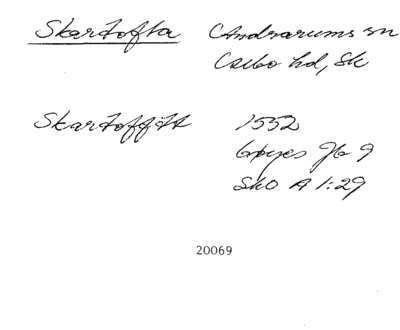 Skartofta Andrarums sn
Albo hd, Sk
Skartofftt 1552
9
SkO A 1:29
20069